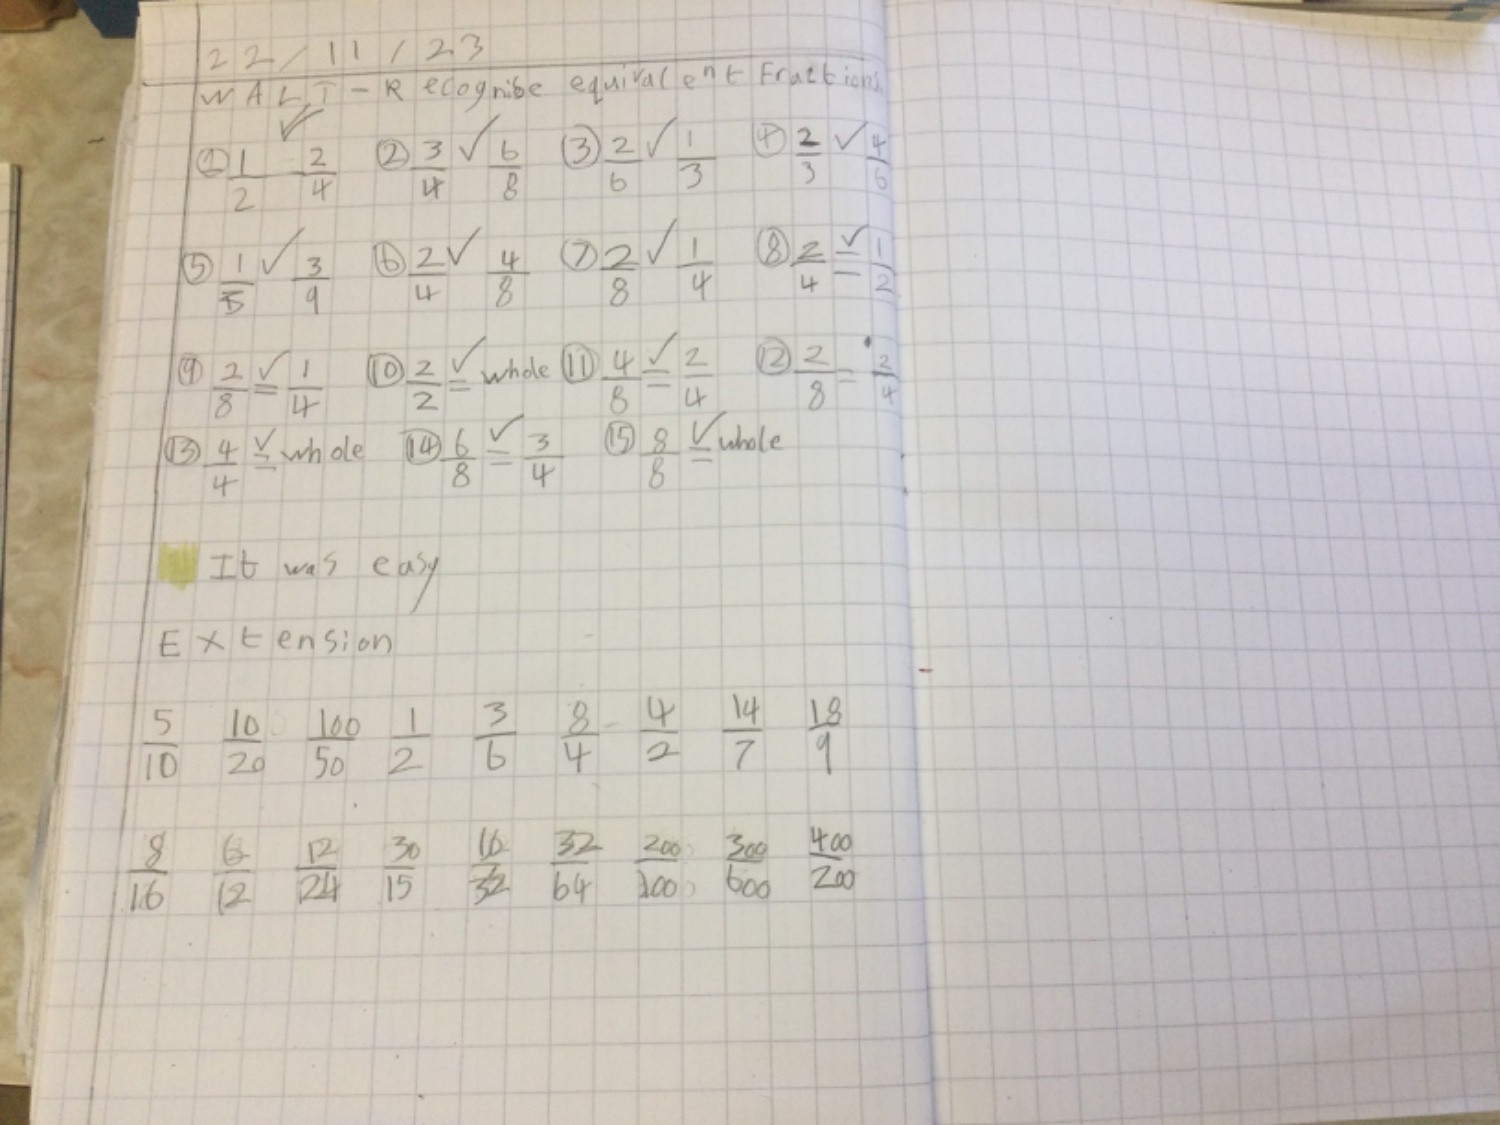 22/11/23
WALT - Recognibe equivalent Fractions
① 1/2 ✓ 2/4 ② 3/4 ✓ 6/8 ③ 2/6 ✓ 1/3 ④ 2/3 ✓ 4/6
⑤ 1/3 ✓ 3/9 ⑥ 2/4 ✓ 4/8 ⑦ 2/8 ✓ 1/4 ⑧ 2/4 ✓ = 1/2
⑨ 2/8 ✓ = 1/4 ⑩ 2/2 ✓ = whole ⑪ 4/8 ✓ = 2/4 ⑫ 2/8 = 2/4
⑬ 4/4 ✓ = whole ⑭ 6/8 ✓ = 3/4 ⑮ 8/8 ✓ = whole
It was easy
Extension
5/10 10/20 100/50 1/2 3/6 8/4 4/2 14/7 18/9
8/16 6/12 12/24 30/15 16/32 32/64 200/100 300/600 400/200